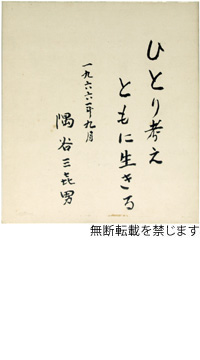 ひとり考え
ともに生きる
一九六六年九月
隅谷三㐂男
無断転載を禁じます